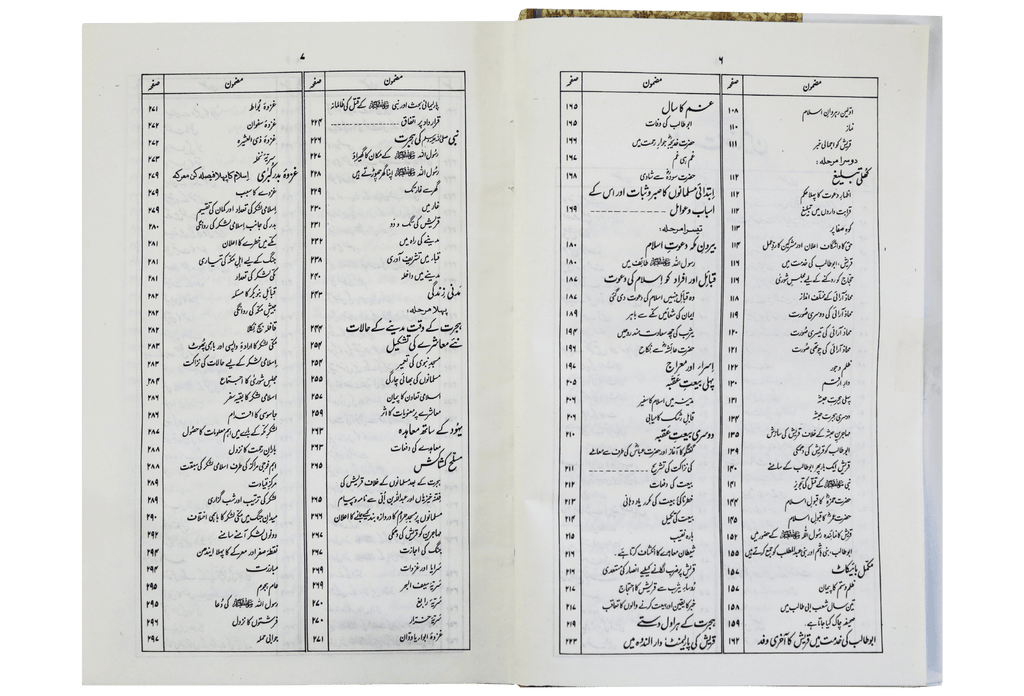 ۶
مضمون صفحہ
اولین رہروان اسلام ۱۰۸
نماز ۱۱۰
قریش کو اجمالی خبر ۱۱۱
دوسرا مرحلہ:
کھلی تبلیغ ۱۱۲
اظہار دعوت کا پہلا حکم ۱۱۲
قرابت داروں میں تبلیغ ۱۱۲
کوہ صفا پر ۱۱۳
حق کا واشگاف اعلان اور مشرکین کا ردِّعمل ۱۱۴
قریش، ابوطالب کی خدمت میں ۱۱۶
حجاج کو روکنے کے لیے مجلس شوریٰ ۱۱۶
محاذ آرائی کے مختلف انداز ۱۱۸
محاذ آرائی کی دوسری صورت ۱۱۹
محاذ آرائی کی تیسری صورت ۱۲۰
محاذ آرائی کی چوتھی صورت ۱۲۱
ظلم وجور ۱۲۲
دارِ ارقم ۱۳۰
پہلی ہجرت حبشہ ۱۳۱
دوسری ہجرت حبشہ ۱۳۴
مہاجرین حبشہ کے خلاف قریش کی سازش ۱۳۵
ابوطالب کو قریش کی دھمکی ۱۳۹
قریش ایک بار پھر ابوطالب کے سامنے ۱۴۰
نبی ﷺ کے قتل کی تجویز ۱۴۱
حضرت حمزہؓ کا قبول اسلام ۱۴۴
حضرت عمرؓ کا قبول اسلام ۱۴۵
قریش کا نمائندہ رسول اللہ ﷺ کے حضور میں ۱۵۲
ابوطالب، بنی ہاشم اور بنی عبدالمطلب کو جمع کرتے ہیں ۱۵۵
مکمل بائیکاٹ ۱۵۷
ظلم و ستم کا پیمان ۱۵۷
تین سال شعب ابی طالب میں ۱۵۸
صحیفہ چاک کیا جاتا ہے۔ ۱۵۹
ابوطالب کی خدمت میں قریش کا آخری وفد ۱۶۲
مضمون صفحہ
غم کا سال ۱۶۵
ابوطالب کی وفات ۱۶۵
حضرت خدیجہؓ جوار رحمت میں ۱۶۶
غم ہی غم ۱۶۷
حضرت سودہؓ سے شادی ۱۶۸
ابتدائی مسلمانوں کا صبر و ثبات اور اس کے
اسباب وعوامل ۱۶۹
تیسرا مرحلہ:
بیرونِ مکہ دعوتِ اسلام ۱۸۰
رسول اللہ ﷺ طائف میں ۱۸۰
قبائل اور افراد کو اسلام کی دعوت ۱۸۷
وہ قبائل جنہیں اسلام کی دعوت دی گئی ۱۸۷
ایمان کی شعائیں مکے سے باہر ۱۸۹
یثرب کی چھ سعادت مند روحیں ۱۹۴
حضرت عائشہؓ سے نکاح ۱۹۶
اسراء اور معراج ۱۹۷
پہلی بیعتِ عقبہ ۲۰۵
مدینہ میں اسلام کا سفیر ۲۰۶
قابل رشک کامیابی ۲۰۶
دوسری بیعتِ عقبہ ۲۱۰
گفتگو کا آغاز اور حضرت عباسؓ کی طرف سے معاملے
کی نزاکت کی تشریح ۲۱۱
بیعت کی دفعات ۲۱۲
خطرناکی بیعت کی مکرر یاد دہانی ۲۱۳
بیعت کی تکمیل ۲۱۴
بارہ نقیب ۲۱۵
شیطان معاہدے کا انکشاف کرتا ہے۔ ۲۱۶
قریش پر ضرب لگانے کیلیے انصار کی مستعدی ۲۱۶
رؤساء یثرب سے قریش کا احتجاج ۲۱۷
خبر کا یقین اور بیعت کرنے والوں کا تعاقب ۲۱۷
ہجرت کے ہراول دستے ۲۱۹
قریش کی پارلیمنٹ دار الندوہ میں ۲۲۳
۷
مضمون صفحہ
پارلیمانی بحث اور نبی ﷺ کے قتل کی ظالمانہ
قرارداد پر اتفاق ۲۲۴
نبی ﷺ کی ہجرت ۲۲۶
رسول اللہ ﷺ کے مکان کا گھیراؤ ۲۲۷
رسول اللہ ﷺ اپنا گھر چھوڑتے ہیں ۲۲۸
گھر سے غار تک ۲۲۹
غار میں ۲۳۰
قریش کی تگ و دَو ۲۳۱
مدینے کی راہ میں ۲۳۲
قباء میں تشریف آوری ۲۳۸
مدینے میں داخلہ ۲۴۰
مدنی زندگی ۲۴۳
پہلا مرحلہ:
ہجرت کے وقت مدینے کے حالات ۲۴۴
نئے معاشرے کی تشکیل ۲۵۴
مسجد نبوی کی تعمیر ۲۵۴
مسلمانوں کی بھائی چارگی ۲۵۵
اسلامی تعاون کا پیمان ۲۵۷
معاشرے پر معنویات کا اثر ۲۵۹
یہود کے ساتھ معاہدہ ۲۶۳
معاہدے کی دفعات ۲۶۳
مسلح کشاکش ۲۶۵
ہجرت کے بعد مسلمانوں کے خلاف قریش کی
فتنہ خیزیاں اور عبداللہ بن اُبَیّ سے نامہ و پیام ۲۶۵
مسلمانوں پر مسجد حرام کا دروازہ بند کیے جانے کا اعلان ۲۶۶
مہاجرین کو قریش کی دھمکی ۲۶۷
جنگ کی اجازت ۲۶۷
سرایا اور غزوات ۲۶۹
سَریّہ سیف البحر ۲۶۹
سَریّہ رابغ ۲۷۰
سَریّہ خرار ۲۷۰
غزوۂ ابواء یا ودّان ۲۷۱
مضمون صفحہ
غزوۂ بُواط ۲۷۱
غزوۂ سفوان ۲۷۲
غزوۂ ذی العشیرہ ۲۷۲
سریّۂ نخلہ ۲۷۳
غزوۂ بدر کبریٰ اسلام کا پہلا فیصلہ کن معرکہ ۲۷۹
غزوے کا سبب ۲۷۹
اسلامی لشکر کی تعداد اور کمان کی تقسیم ۲۷۹
بدر کی جانب اسلامی لشکر کی روانگی ۲۸۰
مکے میں خطرے کا اعلان ۲۸۱
جنگ کے لیے اہل مکہ کی تیاری ۲۸۱
مکی لشکر کی تعداد ۲۸۱
قبائل بنو بکر کا مسئلہ ۲۸۲
جیش مکہ کی روانگی ۲۸۲
قافلہ بچ نکلا ۲۸۲
مکی لشکر کا ارادۂ واپسی اور باہمی پُھوٹ ۲۸۳
اسلامی لشکر کے لیے حالات کی نزاکت ۲۸۳
مجلس شوریٰ کا اجتماع ۲۸۴
اسلامی لشکر کا بقیہ سفر ۲۸۶
جاسوسی کا اقدام ۲۸۶
لشکر مکہ کے بارے میں اہم معلومات کا حصول ۲۸۷
باران رحمت کا نزول ۲۸۸
اہم فوجی مراکز کی طرف اسلامی لشکر کی سبقت ۲۸۸
مرکز قیادت ۲۸۹
لشکر کی ترتیب اور شب گزاری ۲۸۹
میدان جنگ میں مکی لشکر کا باہمی اختلاف ۲۹۰
دونوں لشکر آمنے سامنے ۲۹۲
نقطۂ صفر اور معرکے کا پہلا ایندھن ۲۹۴
مبارزت ۲۹۴
عام ہجوم ۲۹۵
رسول اللہ ﷺ کی دُعا ۲۹۵
فرشتوں کا نزول ۲۹۶
جوابی حملہ ۲۹۷